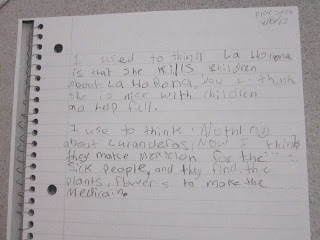 I used to think La Horona
is that she Kills children
about La Horona, Now I think
she is nice with children
and help full.
I use to think Nothing
about curanderas, Now I think
they make Medician for the
Sick people, and they find the
plants, flowers to make the
Medica